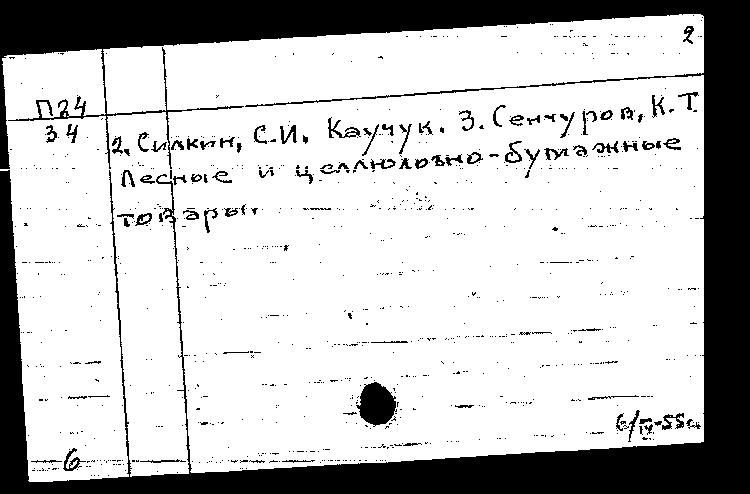 2
П24
34
2. Силкин, С.И. Каучук. 3. Сенчуров, К.Т.
Лесные и целлюлозно-бумажные
товары.
6/IV-55г.
6